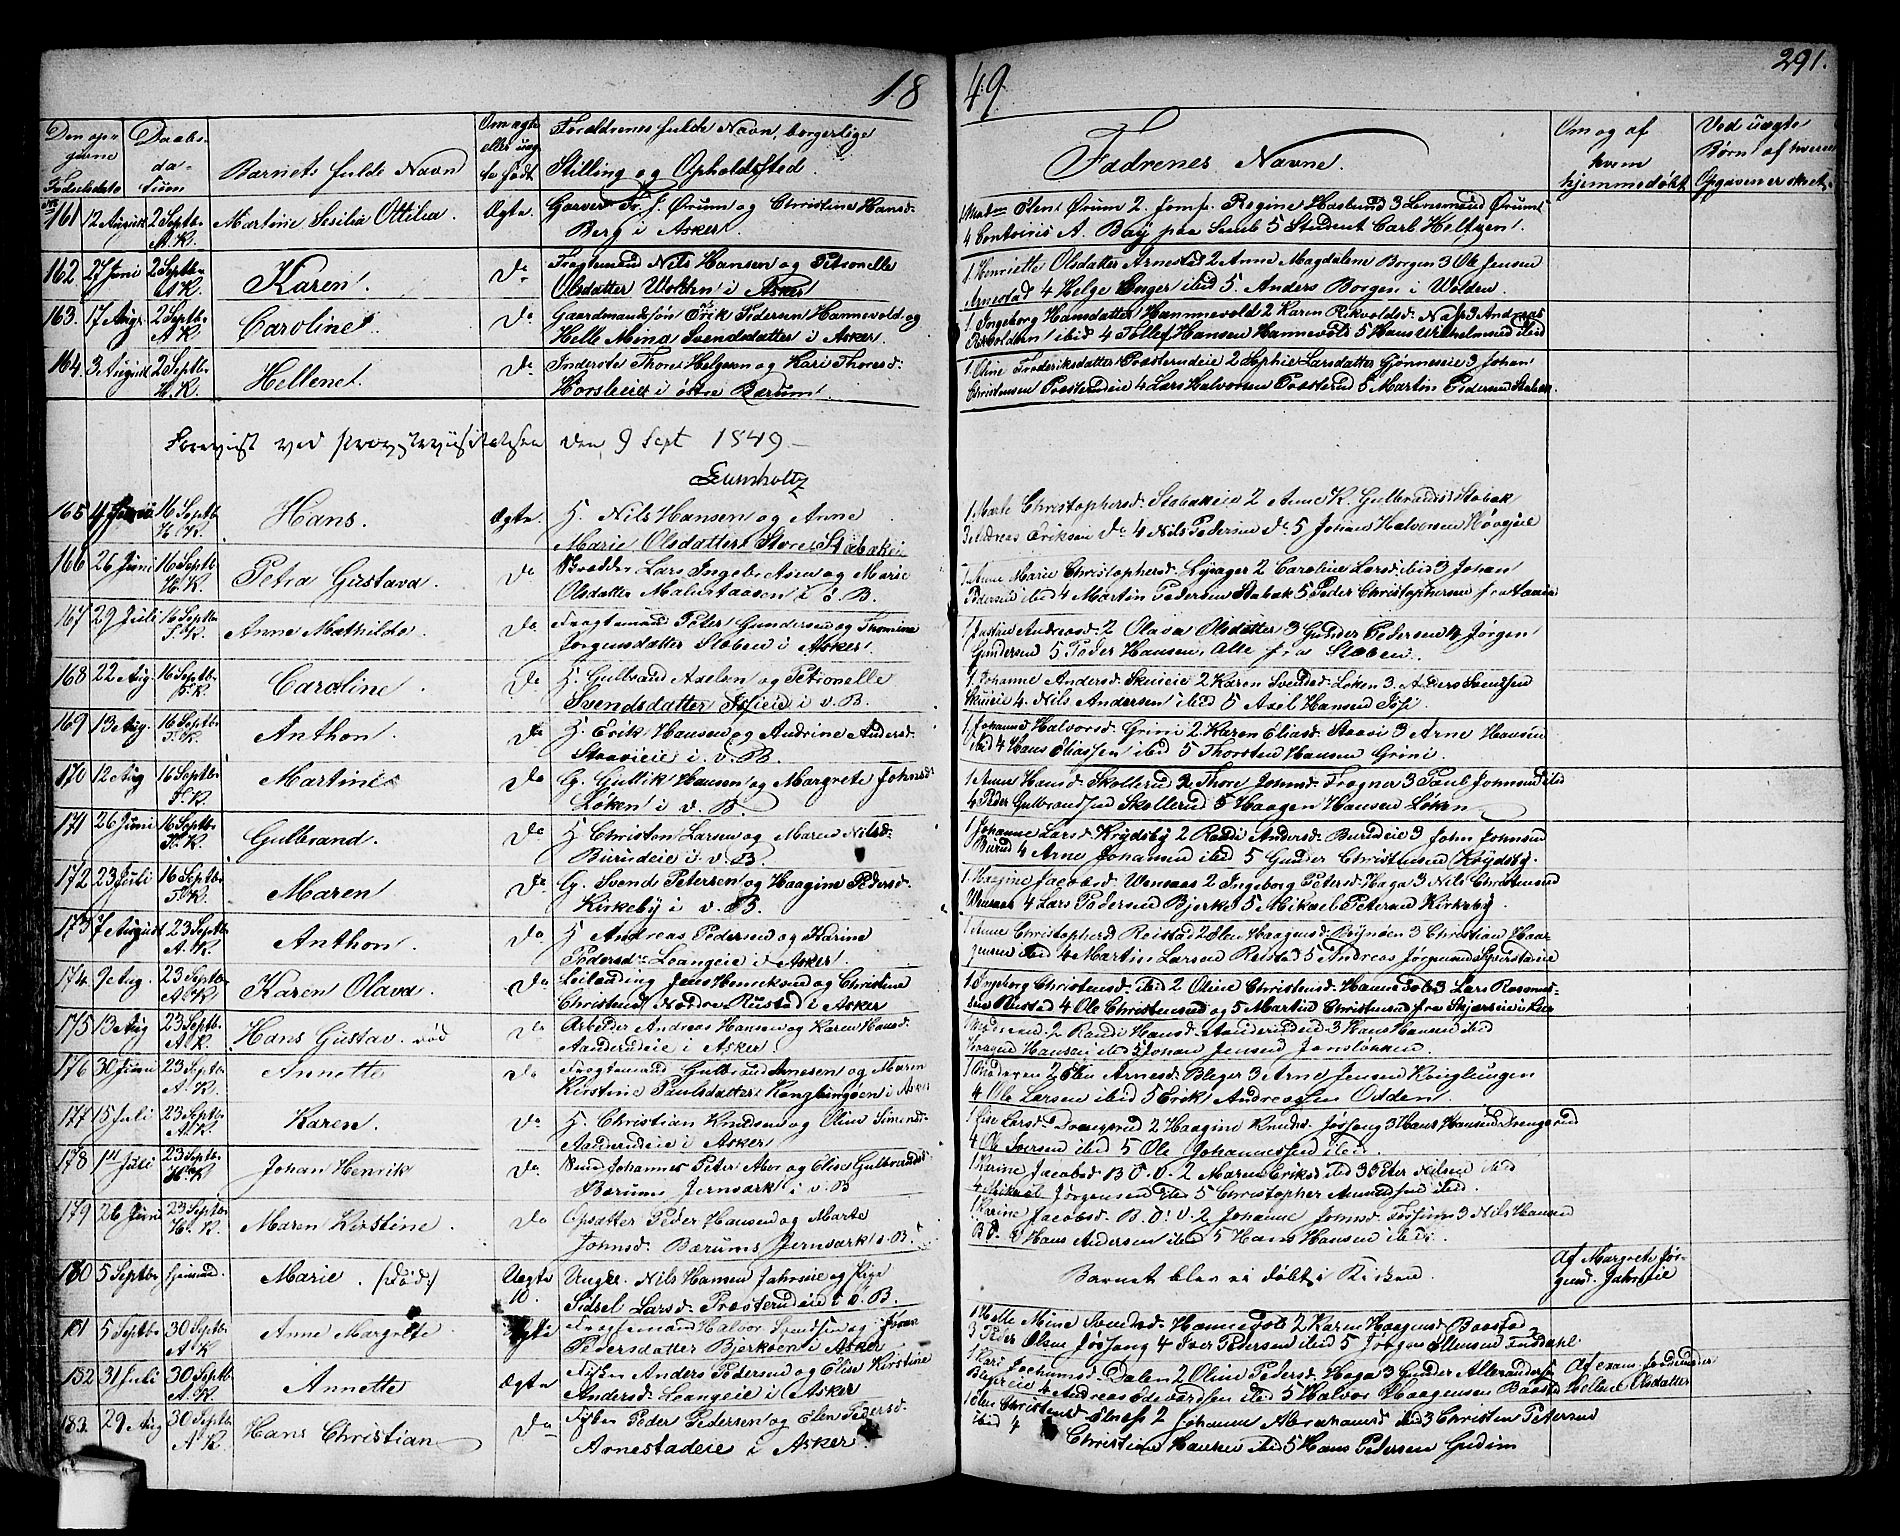 18 49. 291.
Den opgivne Fødselsdato
Daabsdatum
Barnets fulde Navn
Om ægte eller uægte født
Forældrenes fulde Navn, borgerlige Stilling og Opholdssted
Fadrenes Navne.
Om og af hvem hjemmedøbt
Ved uægte Børn af hvem Opgaven er skeet.
161 12 April 2 Septbr A.K. Martine Sesilia Ottilia. Ægte. Garver Fr. J. Ørum og Christine Hansd.
Berg i Asker.
4 A. Bay paa Semb 5 Student Carl Heltzen.
162 27 Juni 2 Septbr A.K. Karen. Do Nils Hansen og Petronelle
Olsdatter Wolden i Asker
1 Henriette Olsdatter Arnestad 2 Anne Magdalene Borgen 3 Ole Jensen
Arnestad 4 Helge Enger ibid 5 Anders Borgen i Wolden.
163. 17 Aug. 2 Septbr A.K. Caroline. Do Gaardmandsøn Erik Pedersen Hannevold og
Helle Mine Svendsdatter i Asker.
1 Ingeborg Hansdatter Hannevold 2 Karen Rikvoldsd. Næs 3 Andreas
ibid 4 Tollef Hansen Hannevold 5 Hans Wilhelmsen ibid
164. 3 August 2 Septbr H.K. Hellene. Do Inderste Thore Helgesen og Kari Thoresd.
i østre Bærum.
1 Oline Frederiksdatter Prosterudeie 2 Sophie Larsdatter Gjønneseie 3 Johan
Christensen Prosterudeie 4 Lars Halvorsen Prosterud 5 Martin Pedersen Stabæk
Forevist ved Provstevisitatsen den 9 Sept 1849 –
165 16 Septbr H.K. Hans. Ægte. H. Nils Hansen og Anne
Marie Olsdatter Store Stabækei
1 Marte Christophersd. Stabækeie 2 Anne K. Gulbrandsd. Stabæk
3 Andreas Eriksen Do 4 Nils Pedersen Do 5 Johan Halvorsen Høvigeie
166 26 Juni 16 Septbr H.K. Petra Gustava. Do Lars Ingebretsen og Marie
Olsdatter i ø. B.
1 Anne Marie Christophersd. Lysager 2 Caroline Larsd. ibid 3 Johan
Pedersen ibid 4 Martin Pedersen Stabæk 5 Peder Christophersen
167 29 Juli 16 Septbr Anne Mathilde. Do Peter Gundersen og Thomine
Jørgensdatter Staben i Asker.
1 Andreasd. 2 Olava Olsdatter 3 Gunder Pedersen 4 Jørgen
Gundersen 5 Peder Hansen, Alle fra Staben.
168 22 Aug. 16 Septbr Caroline. Do H. Gulbrand Axelsen og Petronelle
Svendsdatter i v. B.
1 Johanne Andersd. Skuieie 2 Karen Svendsd. Løken 3. Anders Svendsen
Skuieie 4. Nils Andersen ibid 5 Axel Hansen
169 13 Aug. 16 Septbr Anthon. Do H. Erik Hansen og Andrine Andersd.
Staavieie i v. B.
1 Johanne Halvorsd. Grini 2 Karen Eliasd. Staavi 3 Arne Hansen
ibid 4 Hans Eliassen ibid 5 Thorsten Hansen Grini
170 12 Aug 16 Septbr Martine Do G. Gullik Hansen og Margrete Johnsd.
Løken i v. B.
1 Anne Hansd. Skollerud 2 Thore Johnsd. Frogner 3 Paul Johnsen ibid
4 Peder Gulbrandsen Skollerud 5 Haagen Hansen Løken
171 26 Juni 16 Septbr Gulbrand. Do H. Christen Larsen og Maren Nilsd.
Burudeie i v. B.
1 Johanne Larsd. Krydsby 2 Randi Andersd. Burudeie 3 John Johnsen
Burud 4 Arne Johansen ibid 5 Gunder Christensen Krydsby.
172 23 Juli 16 Septbr Maren. Do G. Svend Petersen og Haagine Pedersd.
Kirkeby i v. B.
1 Haagine Jacobsd. Wensaas 2 Ingeborg Petersd. Haga 3 Nils Christensen
Wensaas 4 Lars Pedersen Bjerke 5 Mikael Petersen Kirkeby.
173 7 August 23 Septbr A.K. Anthon. Do H. Andreas Pedersen og Karine
Pedersd. Loangeie i Asker.
1 Anne Christophersd Reistad 2 Elen Haagensd. Bøynøen 3 Christian Haagensen
ibid 4 Martin Larsen Reistad 5 Andreas Jørgensen
174 7 Aug. 23 Septbr A.K. Karen Olava. Do Leilænding Jens Henriksen og Christine
Christensd. Nordre Rustad i Asker
1 Ingeborg Christensd. ibid 2 Oline Christensd. Hannevold 3 Lars
Rustad 4 Ole Christensen og 5 Martin Christensen fra
175 13 Aug 23 Septbr A.K. Hans Gustav. død Do Arbeider Andreas Hansen og Karen Hansd.
Aanderudeie i Asker.
2 Randi Hansd. Aanderudeie 3 Hans Hansen ibid
Haagen Hansen ibid 5 Johan Jensen Jensløkken
176 30 Juni 23 Septbr A.K. Annette Do Gulbrand Arnesen og Maren
Kirstine Paulsdatter Konglungen i Asker
2 Elen Arnesd. Bleger 3 Arne Jensen Konglungen
4 Ole Larsen ibid 5 Erik Andreassen Odden
177 15 Juli 23 Septbr A.K. Karen. Do H. Christian Knudsen og Oline Simensd.
Aanderudeie i Asker
1 Lise Larsd. 2 Haagine Knudsd. 3 Hans Hansen
4 Ole Iversen ibid 5 Ole Johannessen ibid.
178 1st Juli 23 Septbr H.K. Johan Henrik Do Johannes Peter og Elise Gulbrandsd.
Bærums Jernværk i v. B
1 Karine Jacobsd. B. V. 2 Maren Eriksd. ibid 3 Peter Nilsen ibid
4 Mikael Jørgensen ibid 5 Christopher Amundsen ibid.
179 26 Juni 23 Septbr H.K. Maren Kirstine. Do Opsatter Peder Hansen og Marte
Johnsd. Bærums Jernværk i v. B.
1 Karine Jacobsd. B. V. 2 Johanne Johnsd. Fossum 3 Nils Hansen
4 Hans Andersen ibid 5 Hans Hansen ibid.
180 5 Septbr hjemmed. Marie. (død.) Uægte 10. Ungk. Nils Hansen Jahreie og Pige
Sidsel Larsd. Prosterudeie i v. B.
Barnet blev ei døbt i Kirken.
Af Margrete Jørgensd. Jahreie
181 5 Septbr 30 Septbr A.K. Anne Margrete Ægte Halvor Svendsen og
Pedersdatter Bjerkøen i Asker
1 Helle Mine Svendsd. Hannevold 2 Karen Haagensd. Baastad
3 Peder Olsen Jøssong 4 Iver Pedersen ibid 5 Jørgen Ellensen
182 31 Juli 30 Septbr A.K. Annette Ægte Fisker Anders Pedersen og Elise Kirstine
Andersd. Loangeie i Asker
1 Kari Jochumsd. Dalen 2 Oline Pedersd. Haga 3 Gunder Allexandersen
4 Andreas Edvardsen ibid 5 Halvor Haagensen Baastad
Af exam. Jordemoder Hellene Olsdatter
183. 29 Aug 30 Septbr A.K. Hans Christian Do Peder Pedersen og Elen Pedersd.
Arnestadeie i Asker.
1 Elen Christensd. 2 Johanne Abrahamsd. ibid 3 Christen Petersen
ibid 4 Christian Hansen ibid 5 Hans Pedersen Gudim